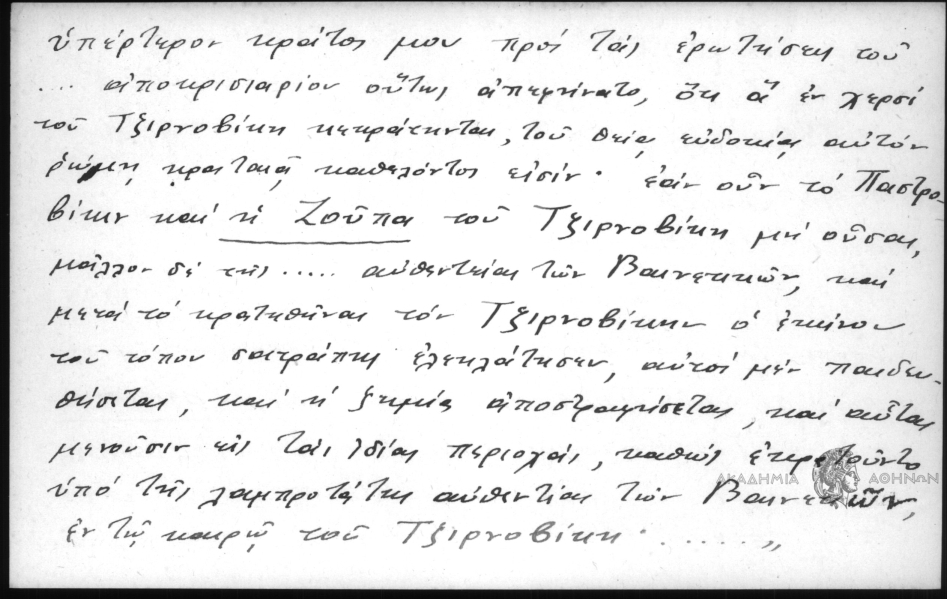 ὑπέρτερον κράτος μου πρός τάς ἐρωτήσεις τοῦ
... ἀποκρισιαρίου οὕτως ἀπεφήνατο, ὅτι ἅ ἐν χερσί
τοῦ Τζιρνοβίκη κεκράτηνται, τοῦ θείᾳ εὐδοκίᾳ αὐτόν
ῥώμῃ κραταιᾷ καθελόντος εἰσίν· ἐάν οὖν τό Παστρο-
βίκιν καί ἡ Ζοῦπα τοῦ Τζιρνοβίκη μή οὖσαι,
μᾶλλον δέ τῆς ..... αὐθεντείας τῶν Βενετικῶν, καί
μετά τό κρατηθῆναι τόν Τζιρνοβίκην ὁ ἐκείνου
τοῦ τόπου σατράπης ἐλεηλάτησεν, αὐτοί μέν παιδευ-
θήσεται, καί ἡ ζημία ἀποστραφήσεται, καί αὗται
μενοῦσιν εἰς τάς ἰδίας περιοχάς, καθώς ἐκρατοῦντο
ὑπό τῆς λαμπροτάτης αὐθεντίας τῶν Βενετικῶν,
ἐν τῷ καιρῷ τοῦ Τζιρνοβίκη· ..... „
ΑΚΑΔΗΜΙΑ ΑΘΗΝΩΝ